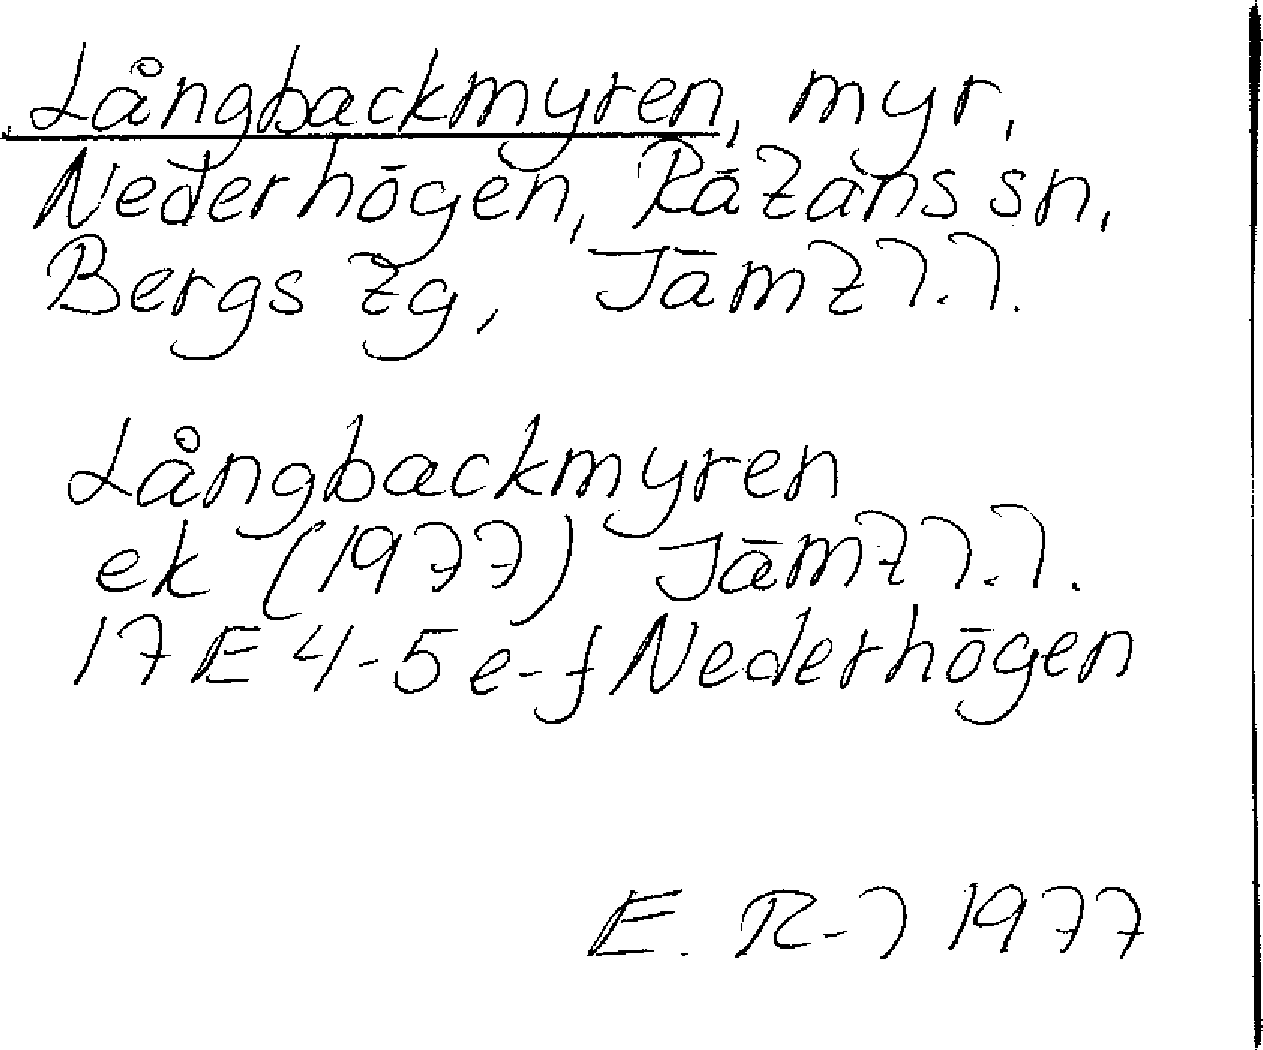 Långbackmyren, myr,
Nederhögen, Rätans sn,
Bergs tg, Jämtl.l.
Långbackmyren
ek (1977) Jämtl.l.
17E 4-5 e-f Nederhögen
E. R-l 1977